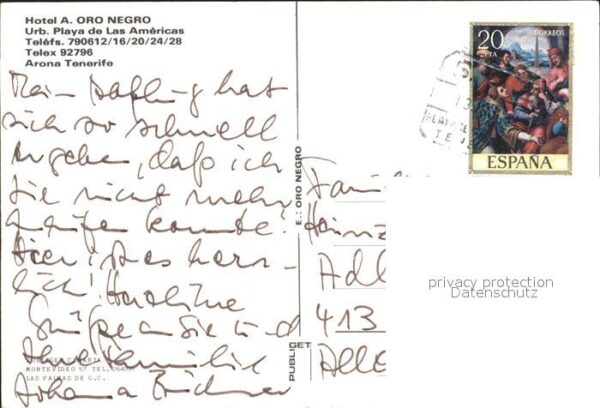 Hotel A. ORO NEGRO
Urb. Playa de Las Amèricas
Telèfs. 790612/16/20/24/28
Telex 92796
Arona Tenerife
Mein hat
sich so schnell
ergeben, daß ich
Sie nicht mehr
konnte!
Hier ist es herr-
lich! Herzliche
Grüße an Sie und
Familie
Johanna
MONTEVIDEO 57 TEL.
LAS PALMAS DE G.C.
E.: ORO NEGRO
PUBLIGET
20
PTA
CORREOS
ESPAÑA
Famili
Heinz
Adl
413
privacy protection
Datenschutz